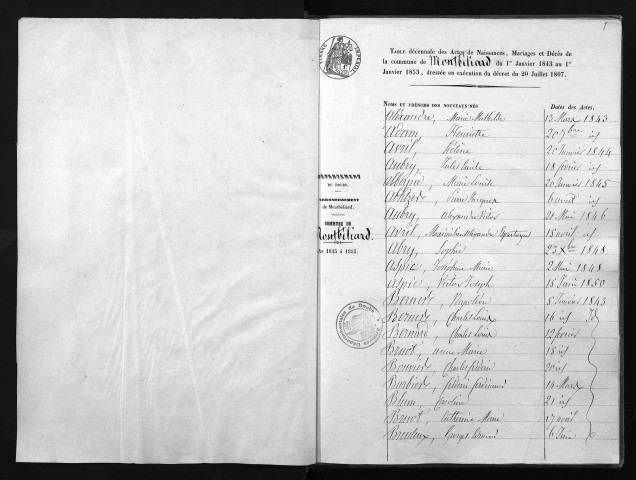 1
TIMBRE IMPÉRIAL
TABLE décennale des Actes de Naissances, Mariages et Décès de
la commune de Montbéliard du 1er Janvier 1843 au 1er
Janvier 1853, dressée en exécution du décret du 20 Juillet 1807.
NOMS ET PRÉNOMS DES NOUVEAUX-NÉS Dates des Actes.
DÉPARTEMENT
DU DOUBS.
ARRONDISSEMENT
de Montbéliard.
COMMUNE DE
Montbéliard.
Alexandre, Marie Mathilde 13 Mars 1843
Adam, Henriette 20 7bre id
Avril, Hélène 20 Janvier 1844
Aubry, Jules Emile 18 février id
Marie Louise 20 Janvier 1845
Pierre Jacques 6 aout id
Aubry, Alexandre Victor 21 Mai 1846
Avril, 15 aout id
Abry, Sophie 23 Xbre 1848
Aspic, Joséphine Marie 2 Mai 1848
Aspic, Victor Joseph 15 Juin 1850
Napoléon 5 Janvier 1843
Charles Louis 16 id
Bernard, Charles Louis 12 février
Bruot, anne Marie 15 id
Bouvier, Charles 20 id
Barbier, 14 Mars
Blum, Caroline 21 id
Bruot, Catherine Marie 17 avril
Georges 6 Juin